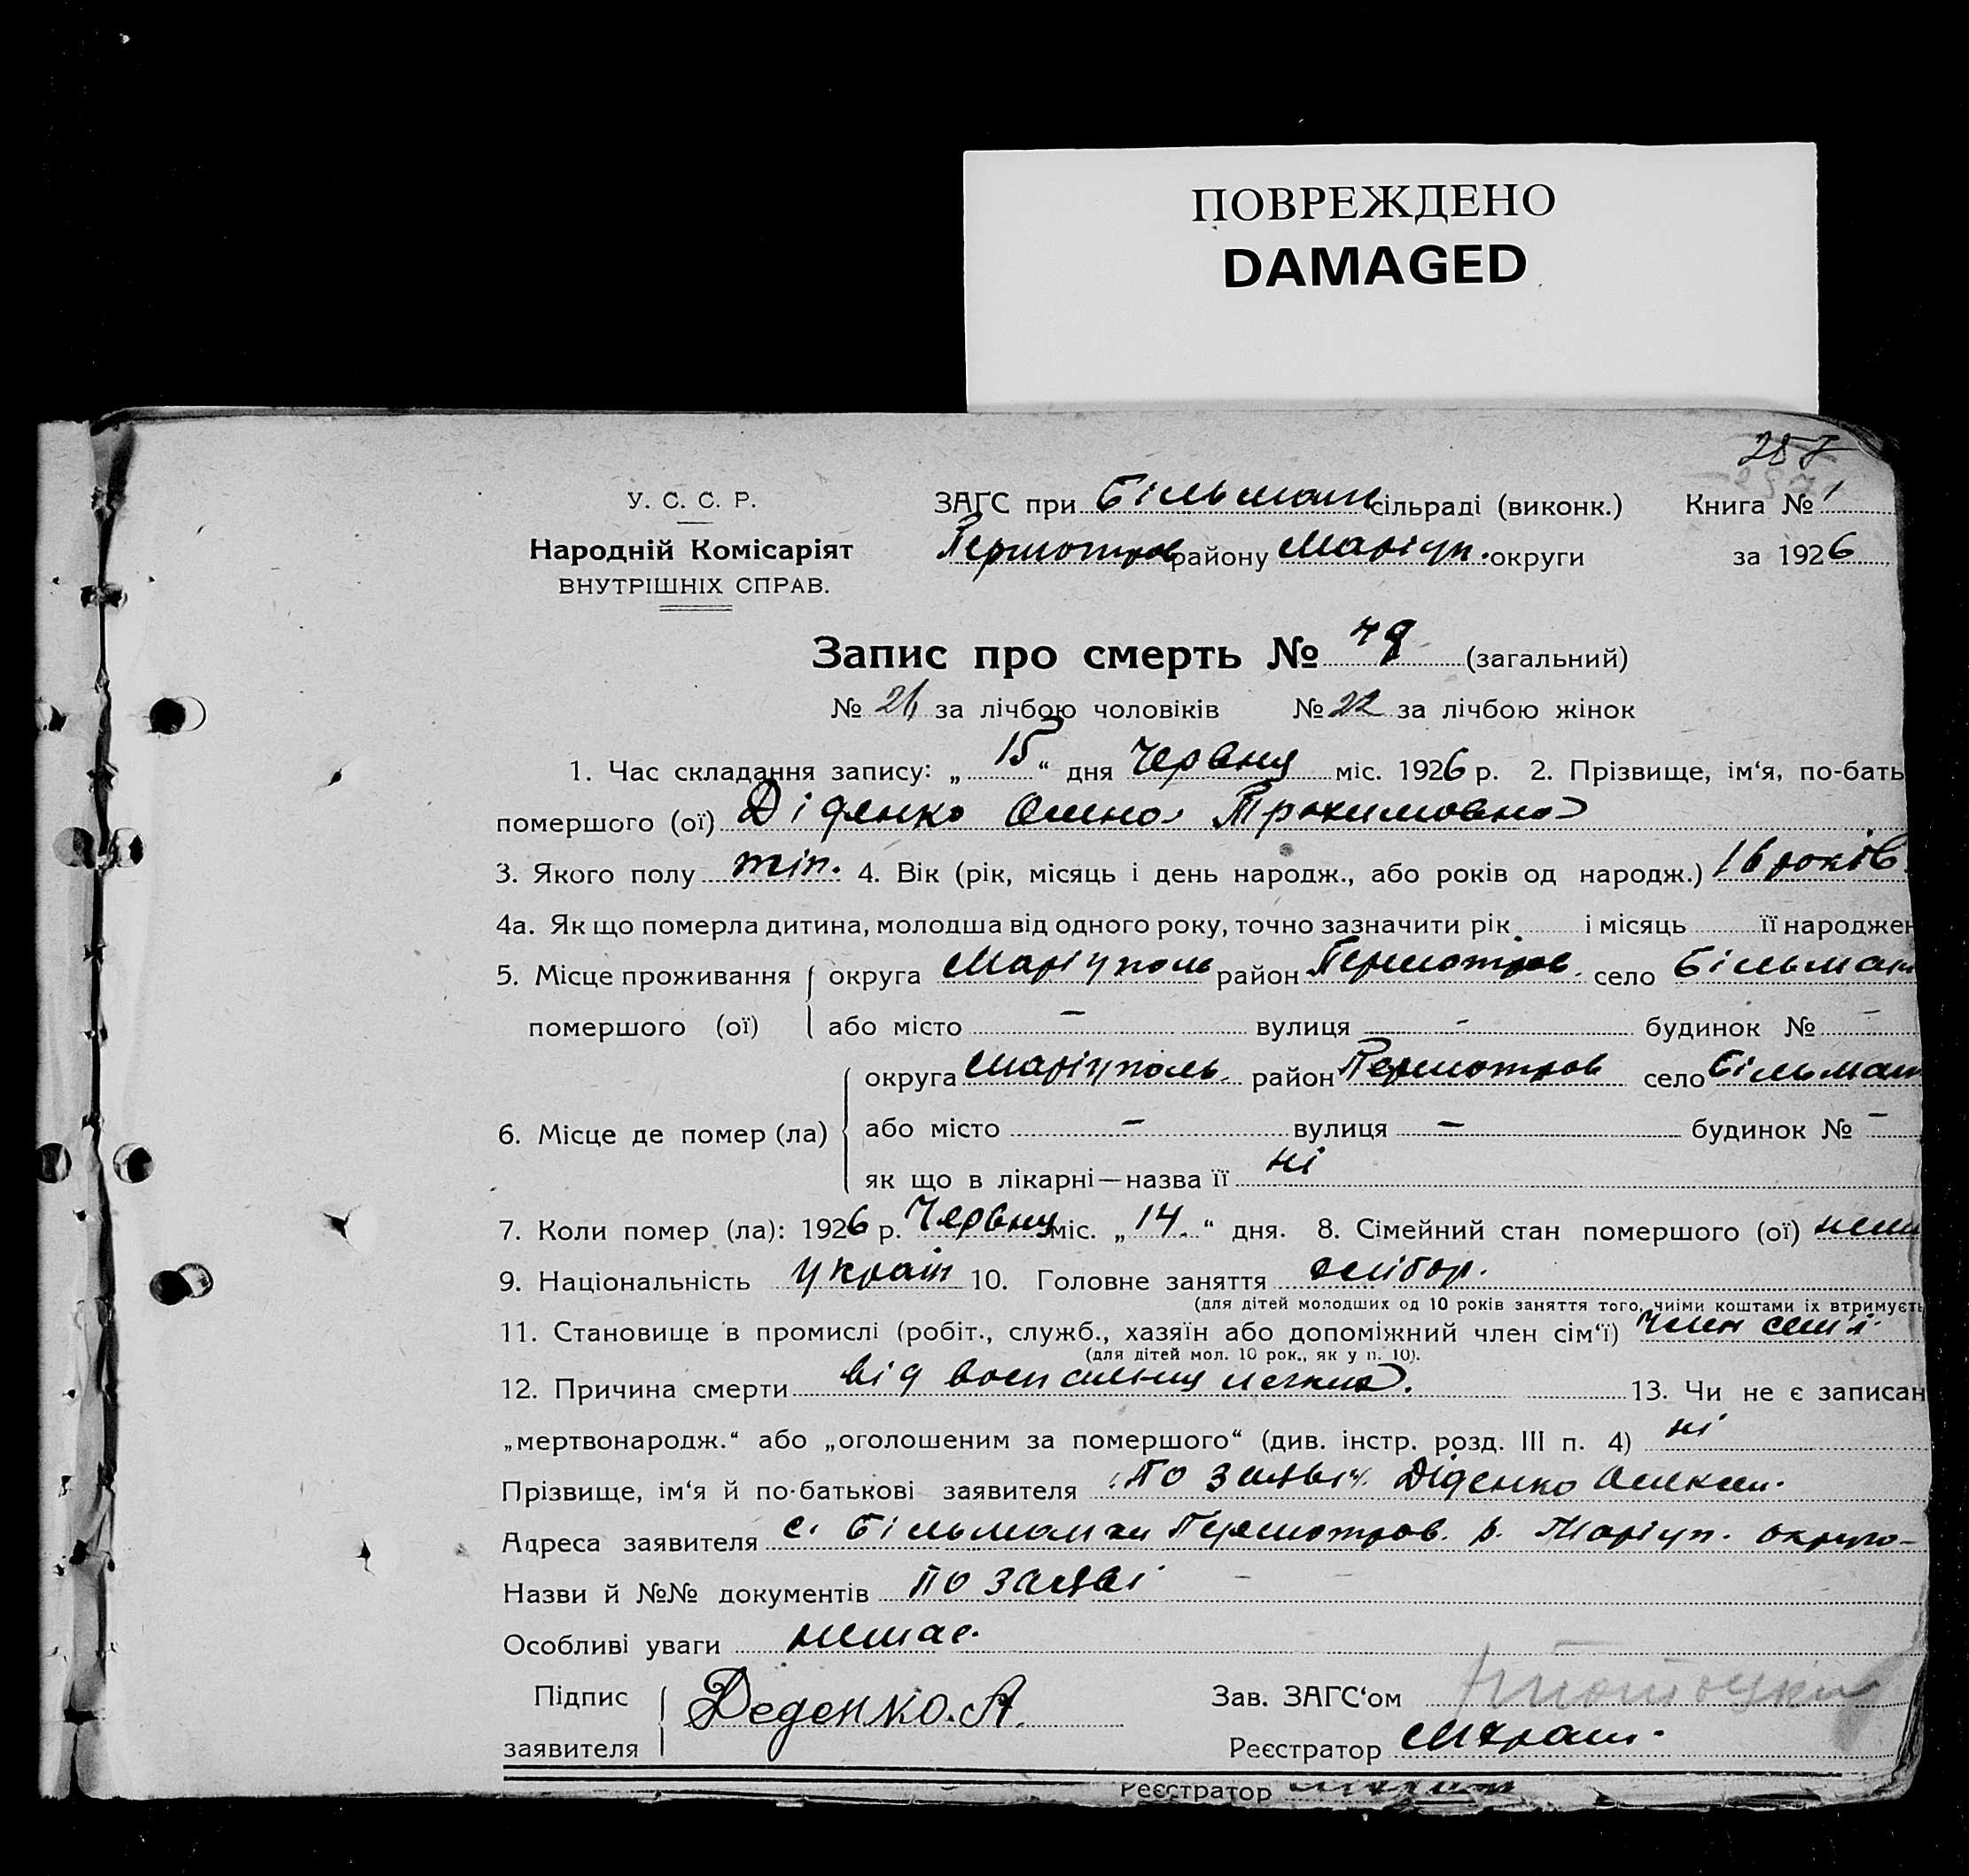 ПОВРЕЖДЕНО
DAMAGED
257
У. С. С. Р. ЗАГС при Більман сільраді (виконк.) Книга № 1
Народній Комісаріят Першотров району Маріуп. округи за 1926
ВНУТРІШНІХ СПРАВ.
Запис про смерть № (загальний)
№ 26 за лічбою чоловіків № 22 за лічбою жінок
1. Час складання запису: „ 15 “ дня Червня міс. 1926 р. 2. Прізвище, ім‘я, по-бать
помершого (ої) Діденко Олена Трохимовна
3. Якого полу жін. 4. Вік (рік, місяць і день народж., або років од народж.) 16 років.
4а. Як що померла дитина, молодша від одного року, точно зазначити рік і місяць її народжен
5. Місце проживання округа Маріуполь район Першотров. село Більман
помершого (ої) або місто – вулиця - будинок № –
округа Маріуполь район Першотров село Більман
6. Місце де помер (ла) або місто – вулиця – будинок № –
як що в лікарні—назва її ні
7. Коли помер (ла): 1926 р. Червня міс. „ 14. “ дня. 8. Сімейний стан помершого (ої)
9. Національність україн 10. Головне заняття хлібор.
(для дітей молодших од 10 років заняття того, чиїми коштами їх втримуєть
11. Становище в промислі (робіт., служб., хазяїн або допоміжний член сім‘ї) член сем'ї
(для дітей мол. 10 рок., як у п. 10).
12. Причина смерти від воспаления легких. 13. Чи не є записан
„мертвонародж.“ або „оголошеним за помершого“ (див. інстр. розд. III п. 4) ні
Прізвище, ім‘я й по-батькові заявителя По заяві Діденко
Адреса заявителя с. Більманки Першотров. р. Маріуп. округо-
Назви й №№ документів по заяві
Особливі уваги немає.
Підпис Деденко. А. Зав. ЗАГС‘ом
заявителя Реєстратор
Реєстратор